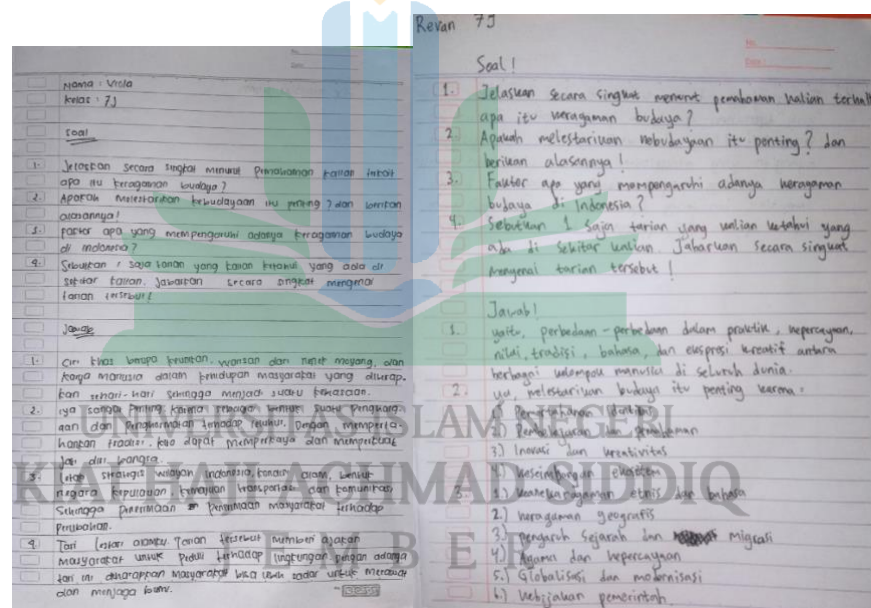 Nama : Viola
Kelas : 7J
Soal
1. Jelaskan secara singkat menurut Pemahaman kalian terkait
apa itu keragaman budaya?
2. Apakah melestarikan kebudayaan itu penting? dan berikan
alasannya!
3. Faktor apa yang mempengaruhi adanya keragaman budaya
di Indonesia?
4. Sebutkan 1 saja tarian yang kalian ketahui yang ada di
sekitar kalian. Jabarkan secara singkat mengenai
tarian tersebut!
Jawab
1. Ciri khas berupa keunikan, warisan dari nenek moyang, dan
karya manusia dalam kehidupan masyarakat yang diterap-
kan sehari-hari sehingga menjadi suatu kebiasaan.
2. iya sangat Penting, karna sebagai bentuk suatu Pengharg-
aan dan Penghormatan terhadap leluhur. Dengan memperta-
hankan tradisi, kita dapat memperkaya dan memperkuat
jati diri bangsa.
3. Letak strategis wilayah Indonesia, kondisi alam, bentuk
negara kepulauan, kemajuan transportasi dan komunikasi
Sehingga Penerimaan masyarakat terhadap
Perubahan.
4. Tari lestari alamku. Tarian tersebut memberi ajakan
masyarakat untuk Peduli terhadap lingkungan dengan adanya
tari ini diharapkan masyarakat bisa lebih sadar untuk merawat
dan menjaga bumi.
Revan 7J
Soal!
1. Jelaskan secara singkat menurut pemahaman kalian terkait
apa itu keragaman budaya?
2. Apakah melestarikan kebudayaan itu penting? dan
berikan alasannya!
3. Faktor apa yang mempengaruhi adanya keragaman
budaya di Indonesia?
4. Sebutkan 1 saja tarian yang kalian ketahui yang
ada di sekitar kalian. Jabarkan secara singkat
mengenai tarian tersebut!
Jawab!
1. yaitu, perbedaan-perbedaan dalam praktik, kepercayaan,
nilai, tradisi, bahasa, dan ekspresi kreatif antara
berbagai kelompok manusia di seluruh dunia.
2. ya, melestarikan budaya itu penting karena =
1) Pertahanan identitas
2.) Pembelajaran dan pemahaman
3) Inovasi dan kreativitas
4) keseimbangan ekosistem
3. 1) keanekaragaman etnis dan bahasa
2) keragaman geografis
3) pengaruh sejarah dan migrasi
4) Agama dan kepercayaan
5.) Globalisasi dan modernisasi
6.) kebijakan pemerintah.
UNIVERSITAS ISLAM NEGERI
KIAI HAJI ACHMAD SIDDIQ
JEMBER